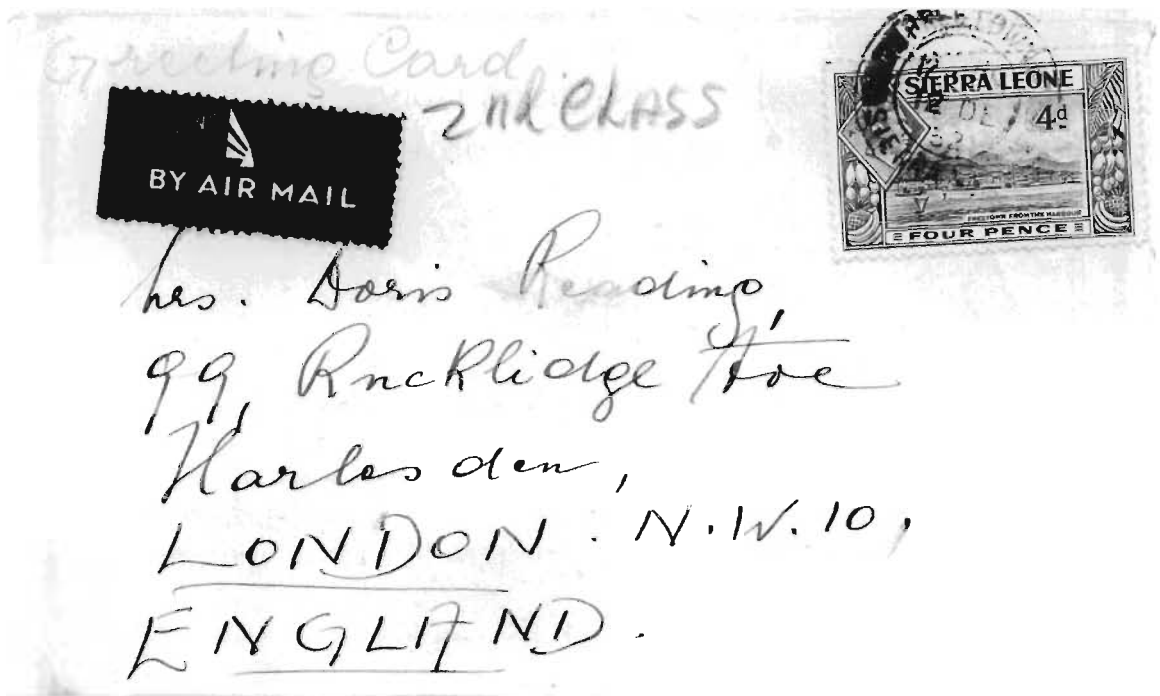 Greeting Card
2nd CLASS
BY AIR MAIL
SIERRA LEONE
4d
FREETOWN FROM THE HARBOUR
FOUR PENCE
Mrs. Doris Reading,
99, Rucklidge Ave
Harlesden,
LONDON. N.W.10.
ENGLAND.